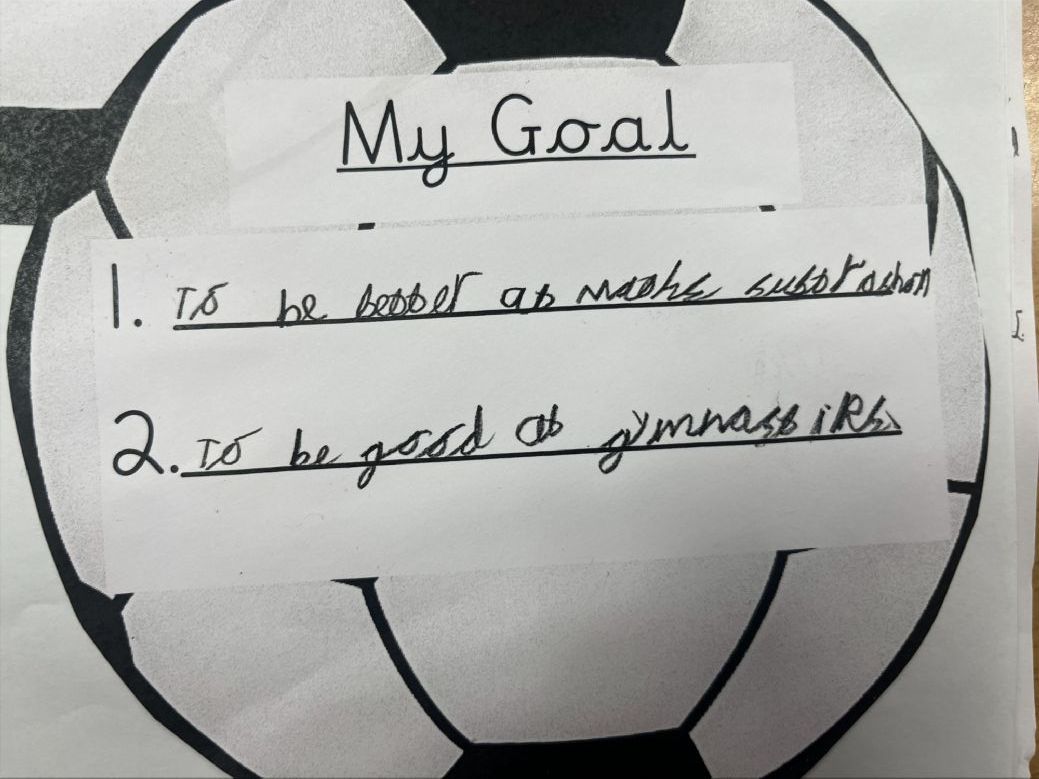 My Goal
1. To be better at maths subtrashon
2. To be good at gymnastiks.